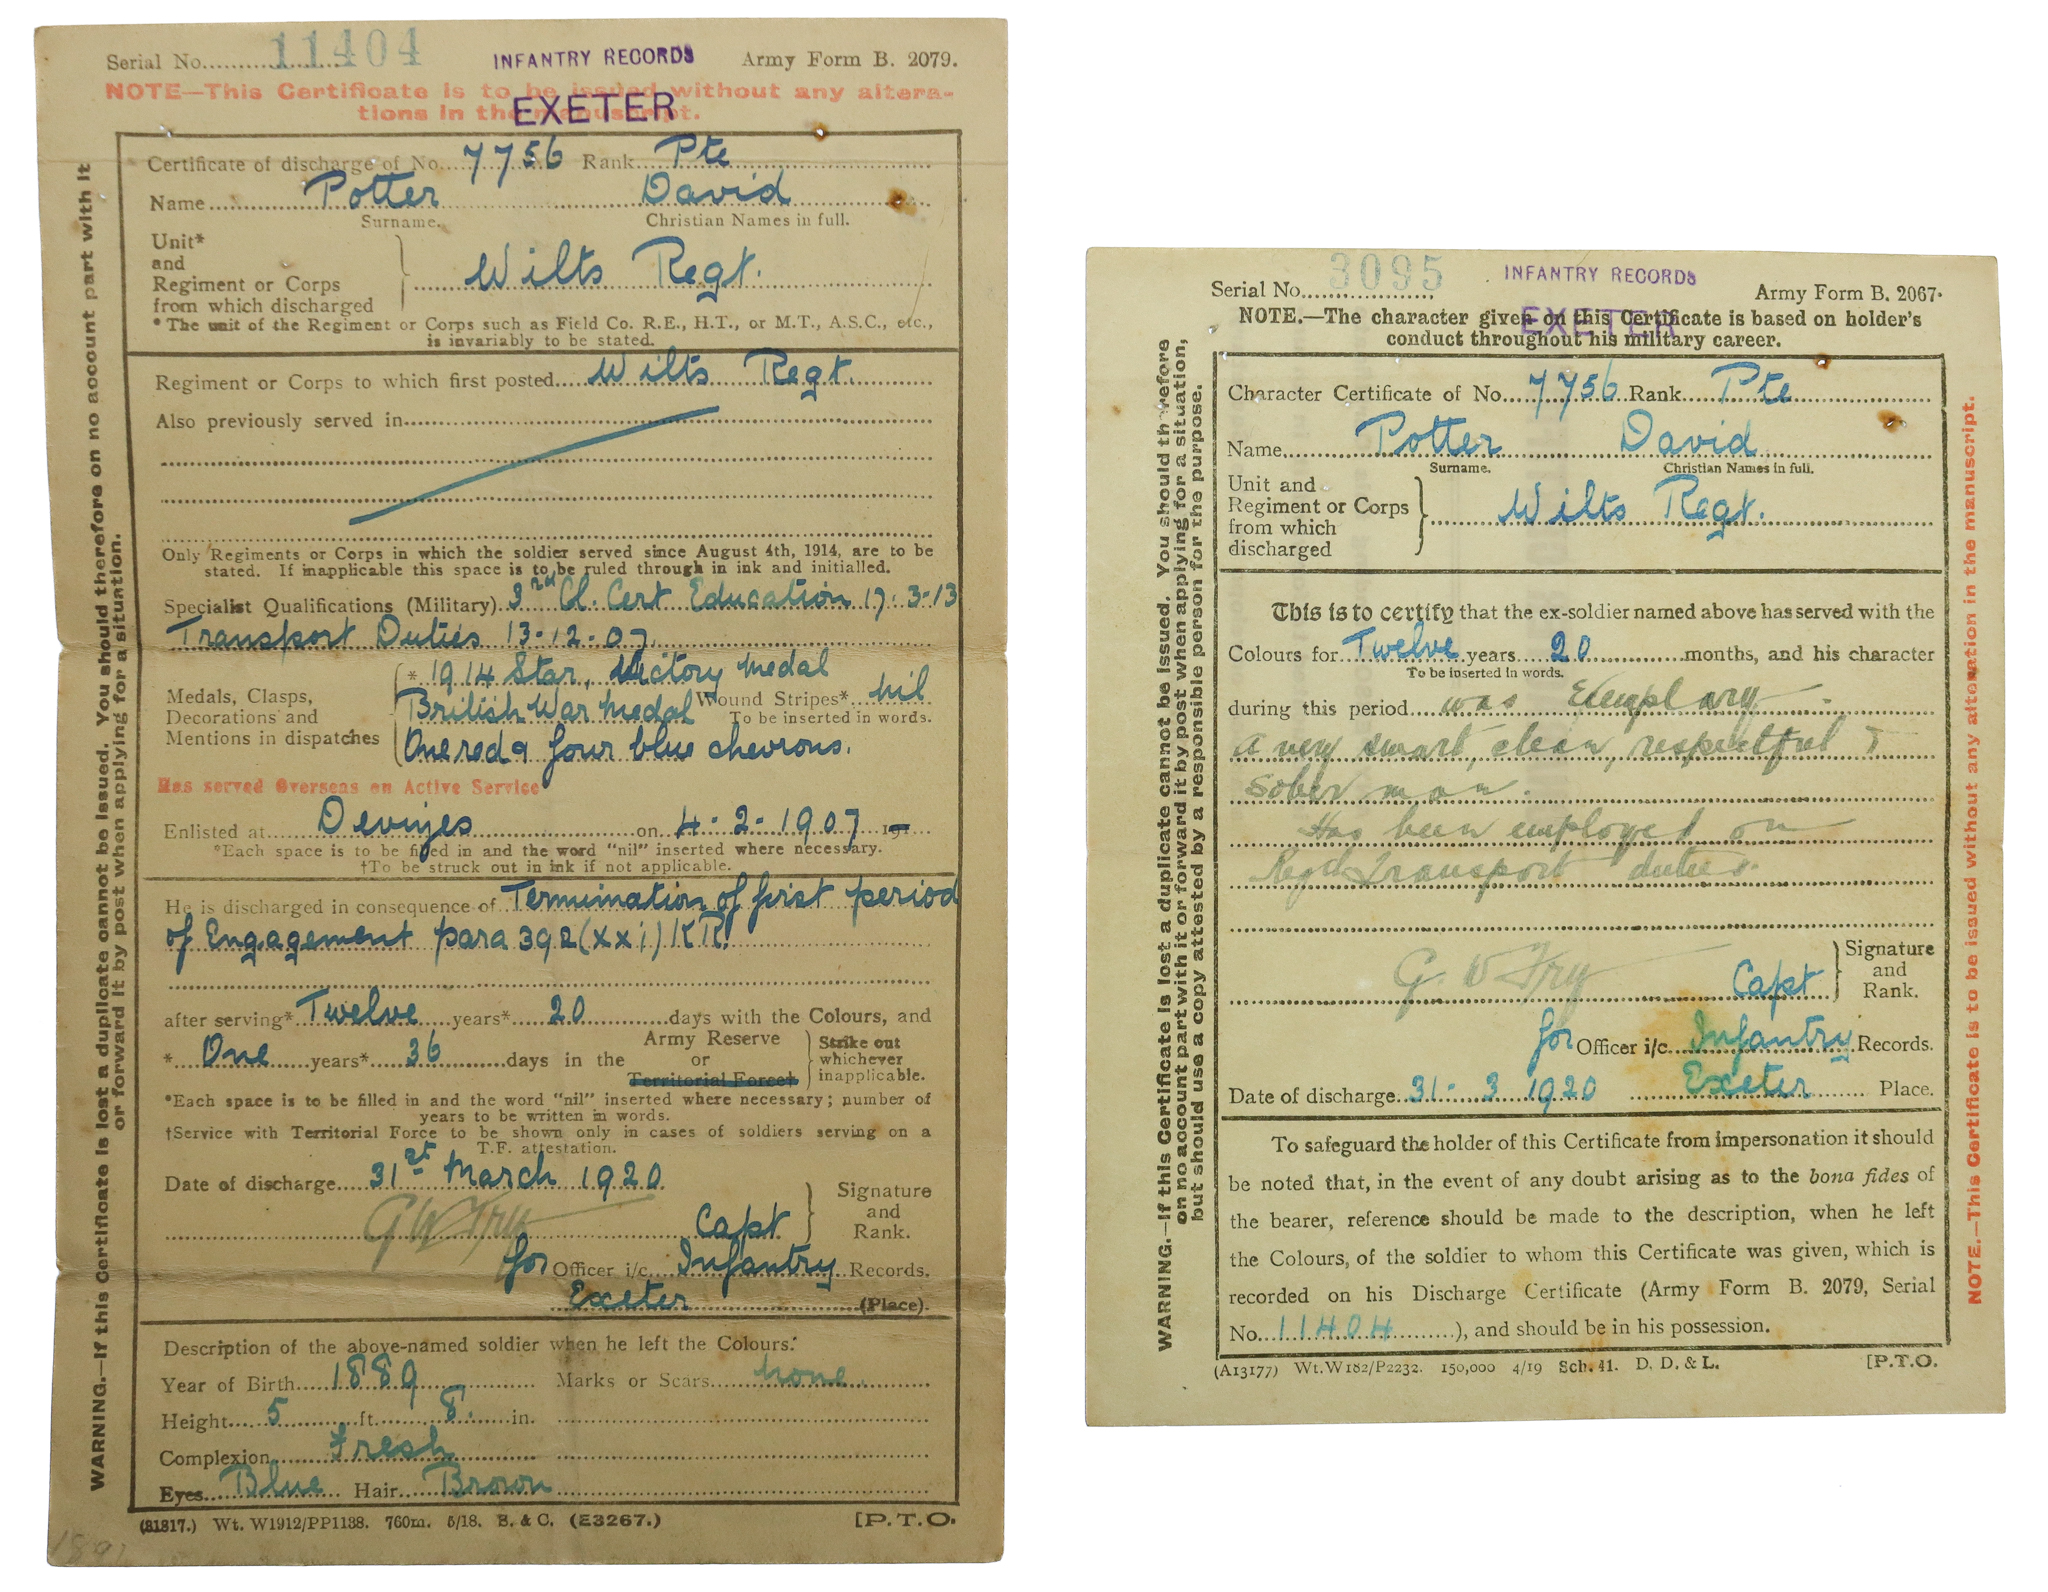 Serial No. 11404 INFANTRY RECORDS Army Form B. 2079.
NOTE—This Certificate is to be issued without any altera-
tions in the manuscript.
EXETER
Certificate of discharge of No. 7756 Rank Pte
Name Potter David
Surname. Christian Names in full.
Unit*
and
Regiment or Corps
from which discharged
Wilts Regt.
* The unit of the Regiment or Corps such as Field Co. R.E., H.T., or M.T., A.S.C., etc.,
is invariably to be stated.
Regiment or Corps to which first posted Wilts Regt.
Also previously served in
Only Regiments or Corps in which the soldier served since August 4th, 1914, are to be
stated. If inapplicable this space is to be ruled through in ink and initialled.
Specialist Qualifications (Military) 3rd Cl. Cert Education 17-3-13
Transport Duties 13-12-07.
Medals, Clasps,
Decorations and
Mentions in dispatches
* 1914 Star, Victory Medal
British War Medal Wound Stripes* Nil
To be inserted in words.
One red & four blue chevrons.
Has served Overseas on Active Service
Enlisted at Devizes on 4-2-1907 191-
*Each space is to be filled in and the word "nil" inserted where necessary.
†To be struck out in ink if not applicable.
He is discharged in consequence of Termination of first period
of Engagement para 392 (xxi) KR.
after serving* Twelve years* 20 days with the Colours, and
* One years* 36 days in the Army Reserve
or
Territorial Force†
Strike out
whichever
inapplicable.
*Each space is to be filled in and the word "nil" inserted where necessary; number of
years to be written in words.
†Service with Territorial Force to be shown only in cases of soldiers serving on a
T.F. attestation.
Date of discharge 31st March 1920
G W Fry Capt
Signature
and
Rank.
for Officer i/c Infantry Records.
Exeter (Place).
Description of the above-named soldier when he left the Colours.
Year of Birth 1889 Marks or Scars None.
Height 5 ft. 8. in.
Complexion Fresh
Eyes Blue Hair Brown
(31817.) Wt. W1912/PP1138. 760m. 5/18. B. & C. (E3267.) [P.T.O.
WARNING.—If this Certificate is lost a duplicate cannot be issued. You should therefore on no account part with it
or forward it by post when applying for a situation.
Serial No. 3095 INFANTRY RECORDS Army Form B. 2067.
EXETER
NOTE.—The character given on this Certificate is based on holder's
conduct throughout his military career.
Character Certificate of No. 7756 Rank Pte
Name Potter David
Surname. Christian Names in full.
Unit and
Regiment or Corps
from which
discharged
Wilts Regt.
This is to certify that the ex-soldier named above has served with the
Colours for Twelve years 20 months, and his character
To be inserted in words.
during this period was Exemplary.
A very smart, clean, respectful &
sober man.
Has been employed on
Regtl Transport duties.
G. W Fry Capt
Signature
and
Rank.
for Officer i/c Infantry Records.
Date of discharge 31-3 1920 Exeter Place.
To safeguard the holder of this Certificate from impersonation it should
be noted that, in the event of any doubt arising as to the bona fides of
the bearer, reference should be made to the description, when he left
the Colours, of the soldier to whom this Certificate was given, which is
recorded on his Discharge Certificate (Army Form B. 2079, Serial
No. 11404), and should be in his possession.
(A13177) Wt. W182/P2232. 150,000 4/19 Sch. 41. D. D. & L. [P.T.O.
WARNING.—If this Certificate is lost a duplicate cannot be issued. You should therefore
on no account part with it or forward it by post when applying for a situation,
but should use a copy attested by a responsible person for the purpose.
NOTE.—This Certificate is to be issued without any alteration in the manuscript.